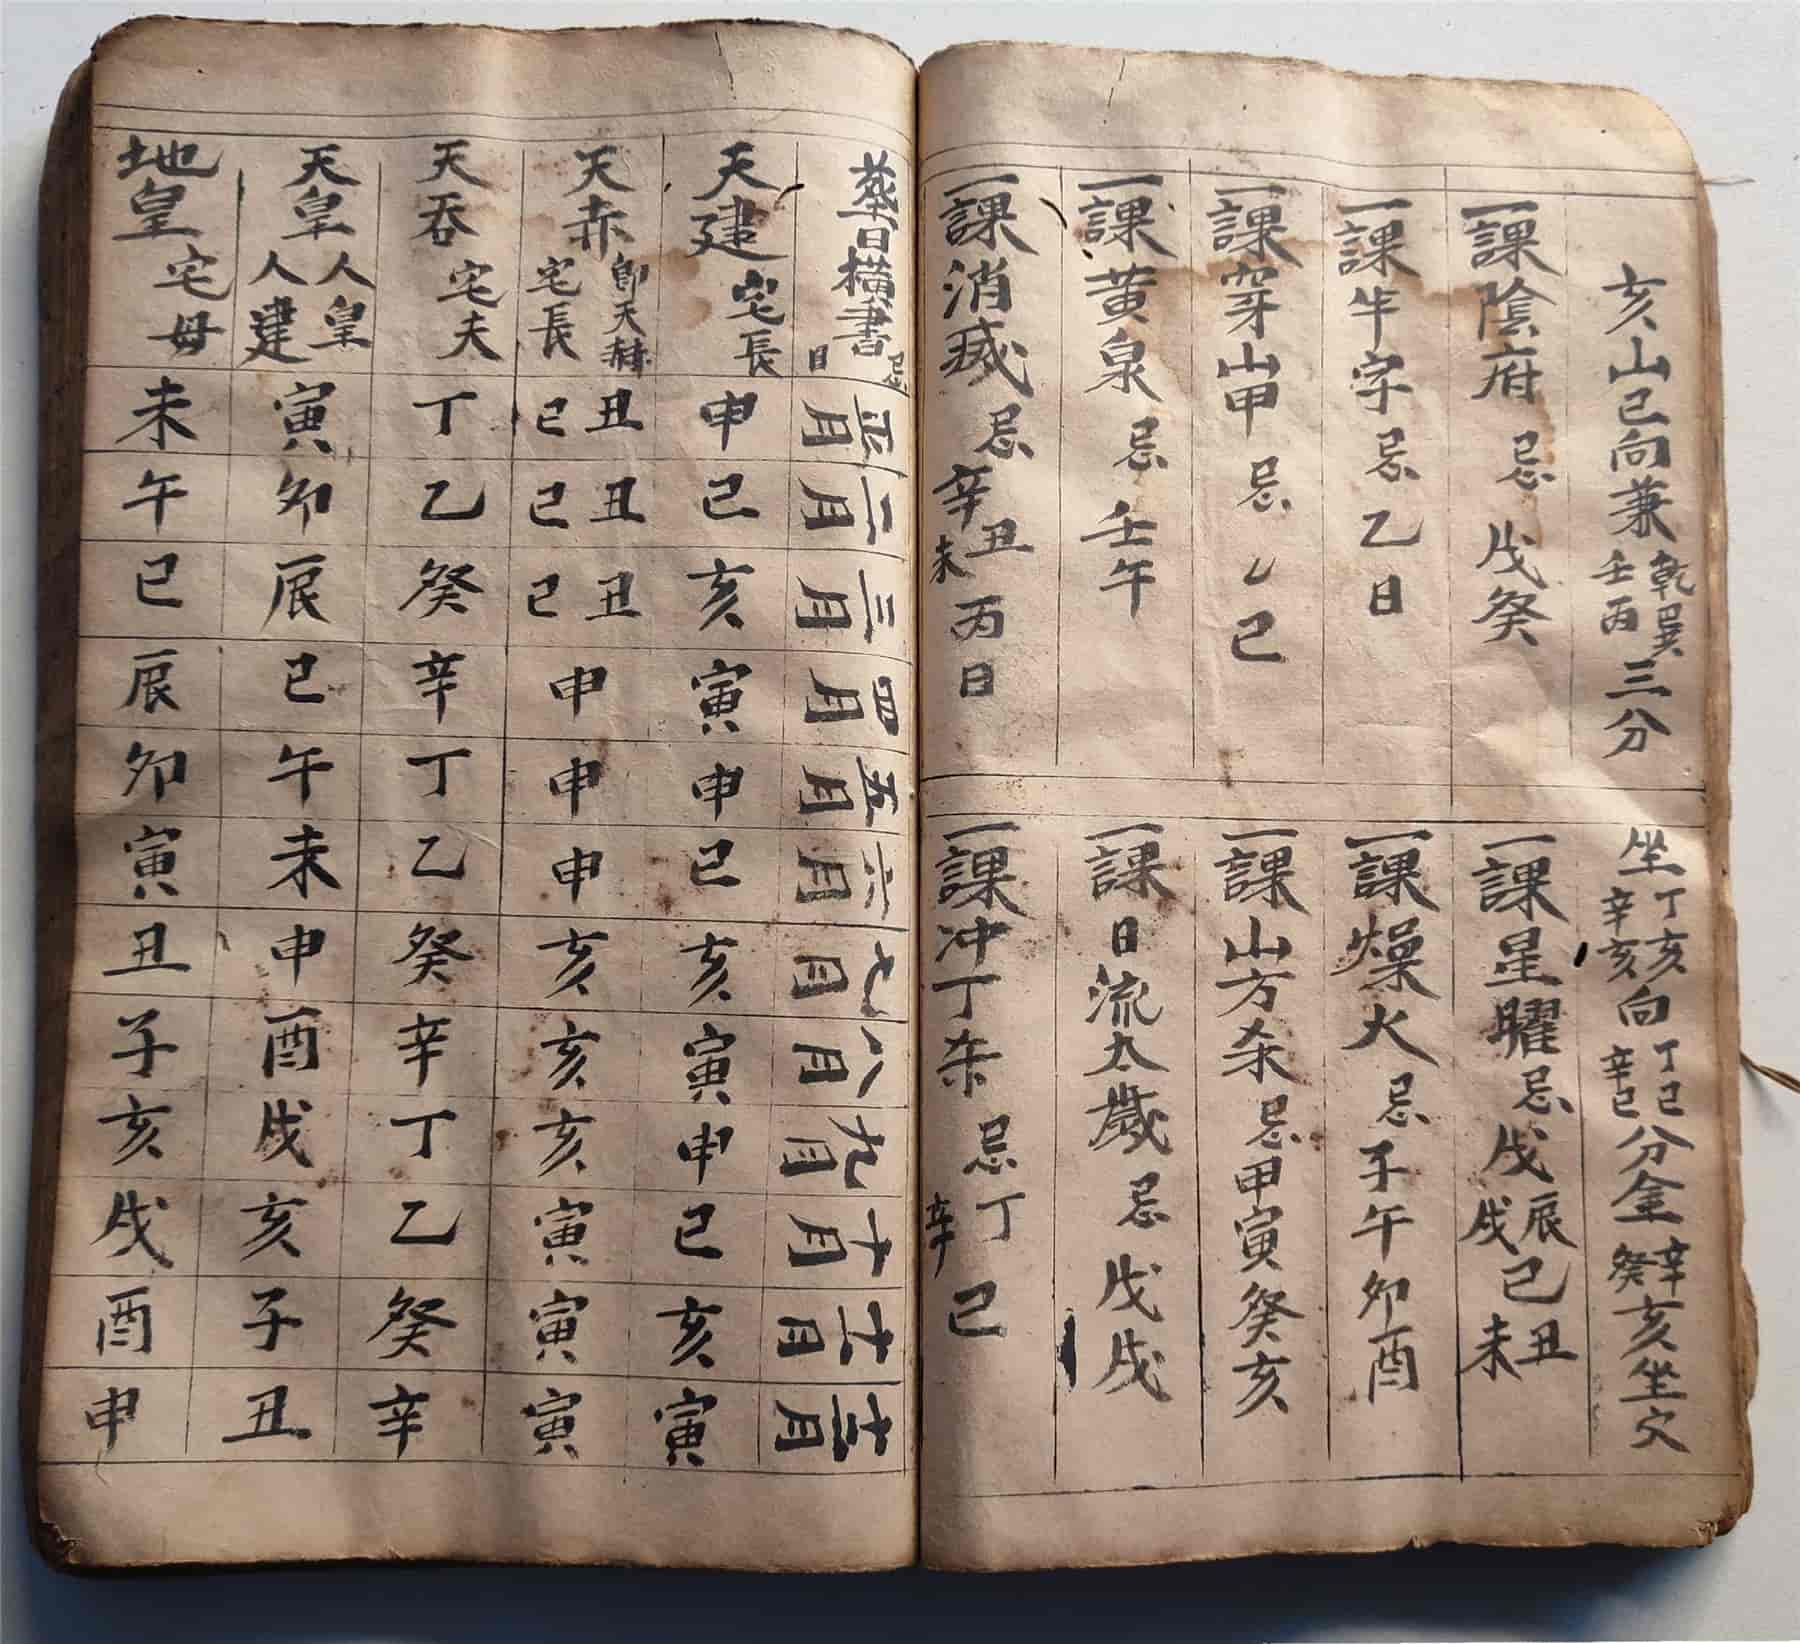 亥山巳向兼乾巽壬丙三分
一課陰府忌戊癸
一課牛字忌乙日
一課穿山甲忌乙巳
一課黃泉忌壬午
一課消滅忌辛丑未丙日
坐丁亥辛亥向丁巳辛巳分金辛癸亥坐穴
一課星曜忌戊辰戊戌己丑未
一課燥火忌子午卯酉
一課山方杀忌甲寅癸亥
一課日流太歲忌戊戌
一課冲丁杀忌丁辛巳
葬日橫書忌日
正月 二月 三月 四月 五月 六月 七月 八月 九月 十月 十一月 十二月
天建宅長 申 巳 亥 寅 申 巳 亥 寅 申 巳 亥 寅
天赤即天赫宅長 丑己 丑己 丑己 申 申 申 亥 亥 亥 寅 寅 寅
天吞宅夫 丁 乙 癸 辛 丁 乙 癸 辛 丁 乙 癸 辛
天皇人皇人建 寅 卯 辰 巳 午 未 申 酉 戌 亥 子 丑
地皇宅母 未 午 巳 辰 卯 寅 丑 子 亥 戌 酉 申